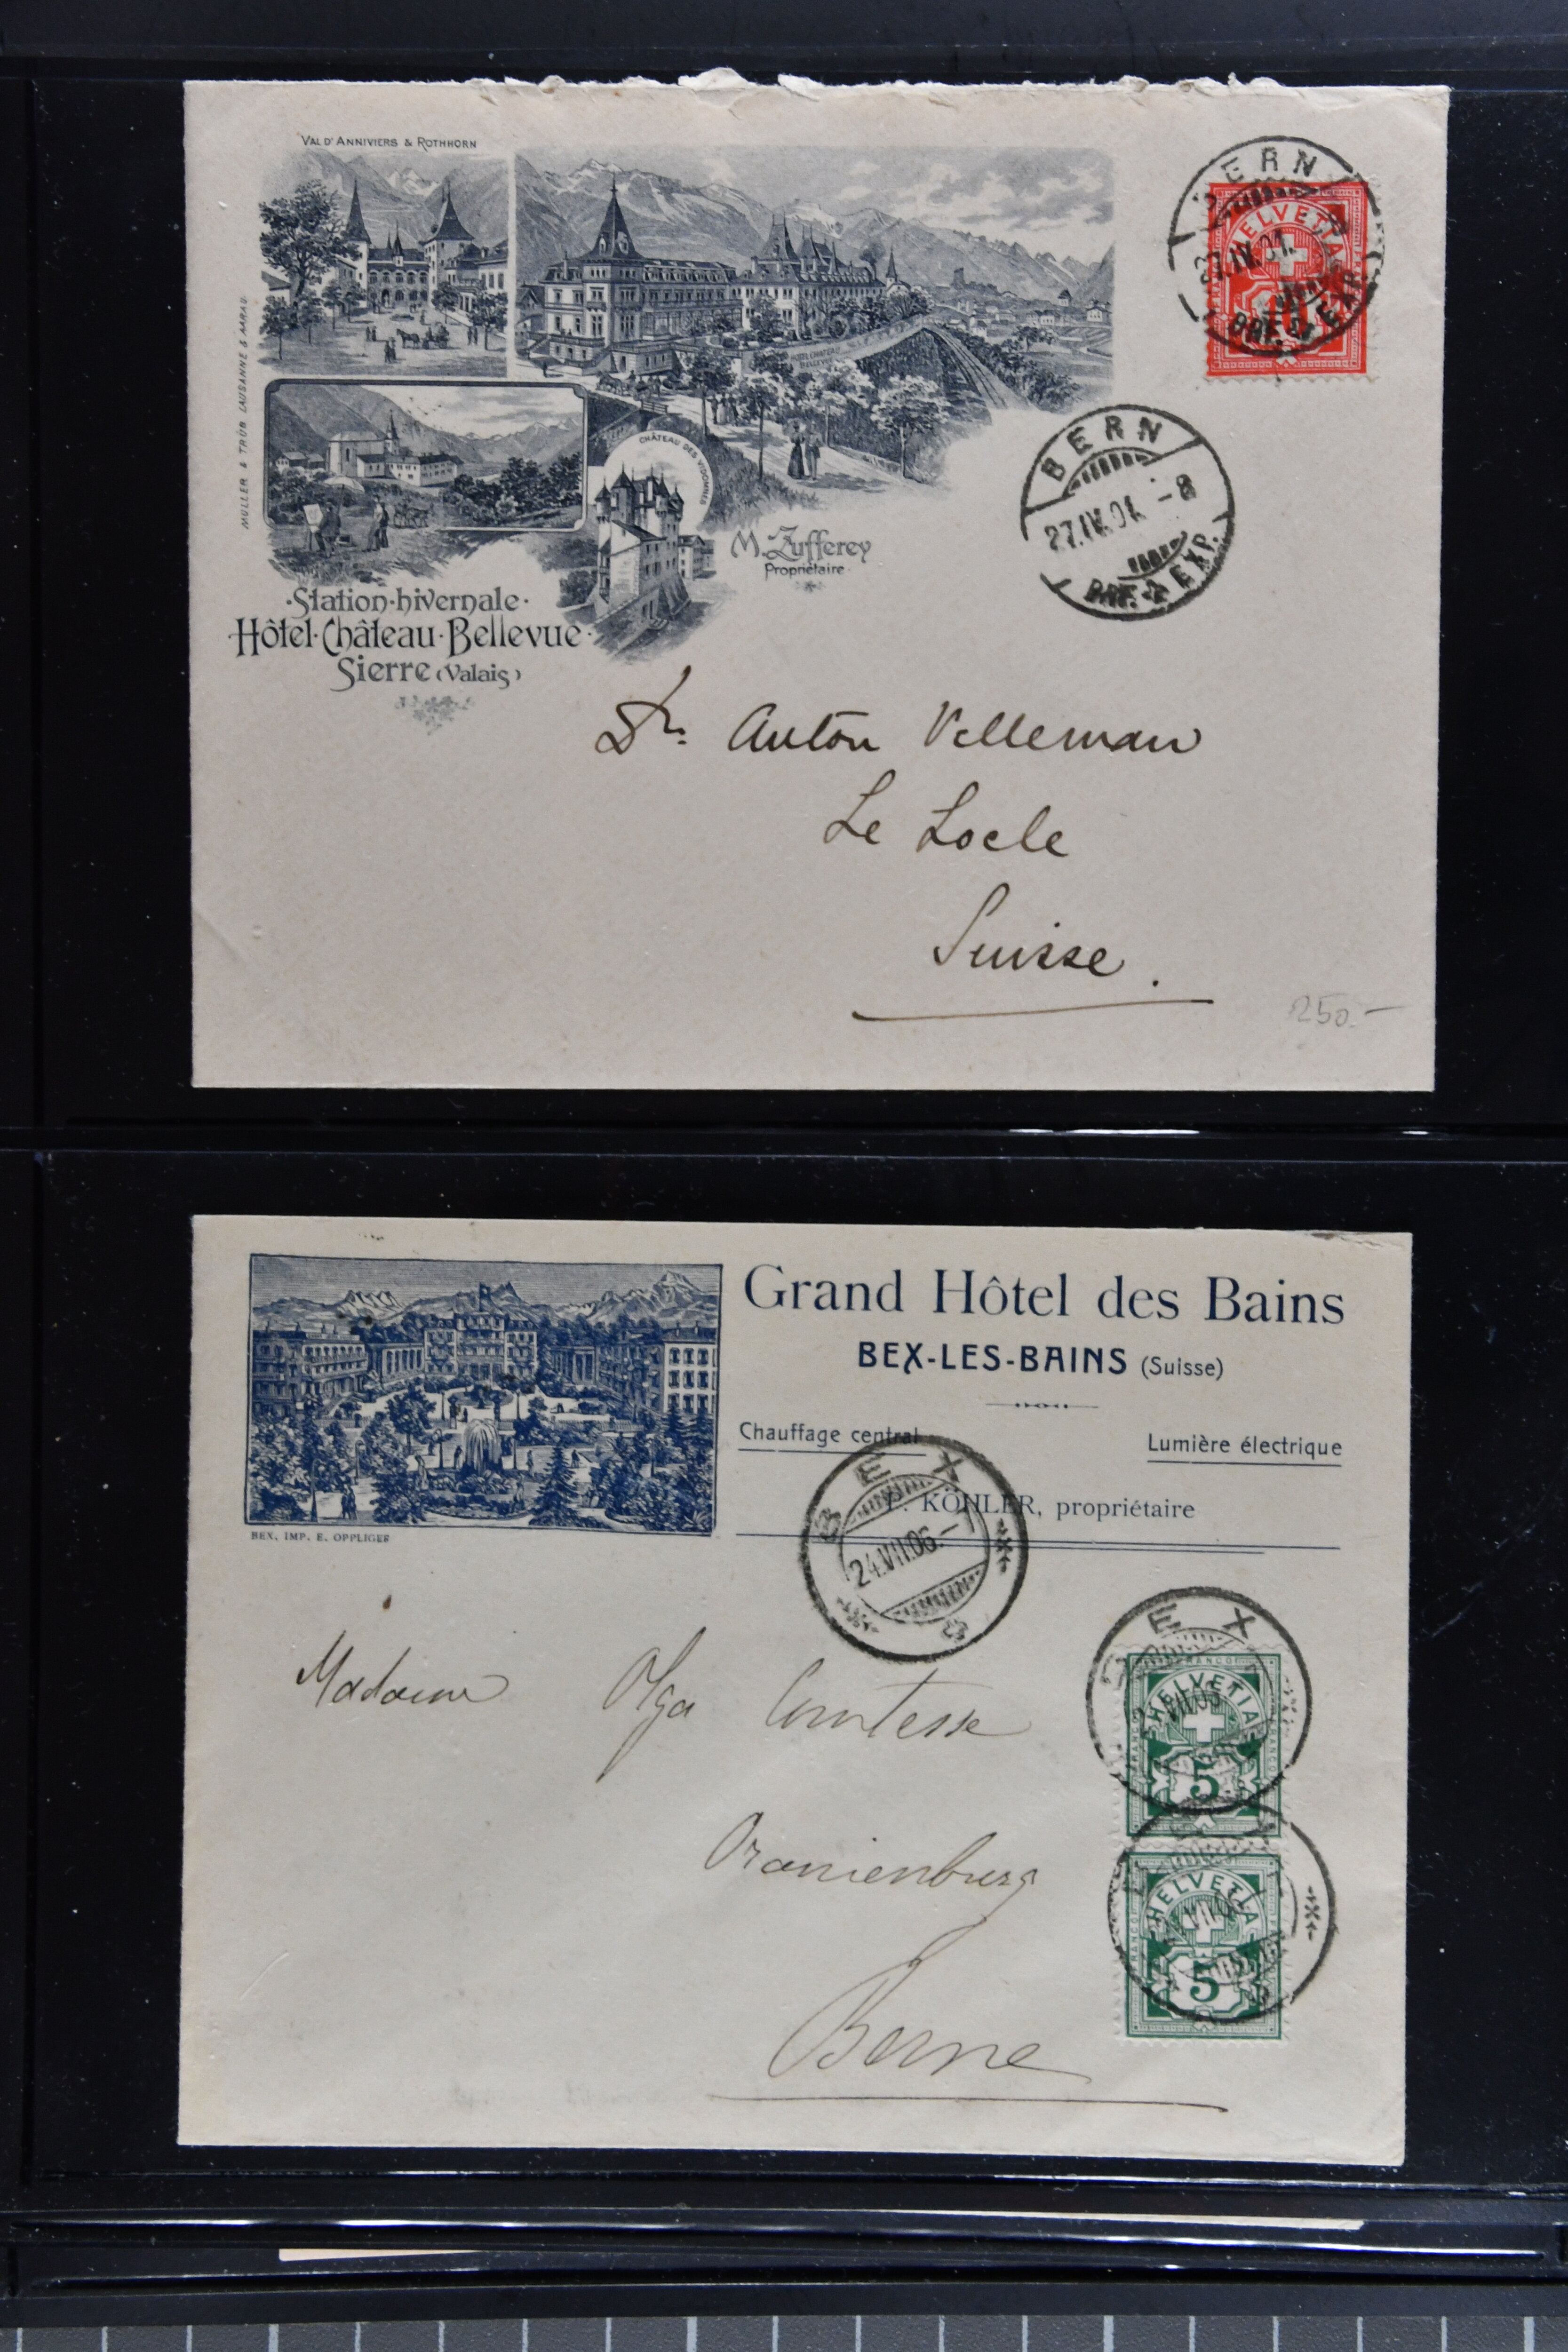 VAL D'ANNIVIERS & ROTHHORN
MÜLLER & TRÜB LAUSANNE & AARAU.
HOTEL CHATEAU
BELLEVUE
CHÂTEAU DES VIDOMNES
M. Zufferey
Propriétaire
·Station·hivernale·
·Hôtel·Château·Bellevue·
Sierre (Valais)
BERN
HELVETIA
10
BRF. & EXP.
BERN
27.IV.01. -8
BRF. & EXP.
Dr. Anton Velleman
Le Locle
Suisse.
250.-
Grand Hôtel des Bains
BEX-LES-BAINS (Suisse)
Chauffage central
Lumière électrique
KÖHLER, propriétaire
BEX, IMP. E. OPPLIGER
BEX
24.VII.05.-
Madame Olga Comtesse
Oranienburg
Berne
BEX
FRANCO
HELVETIA
FRANCO
5
HELVETIA
FRANCO
5